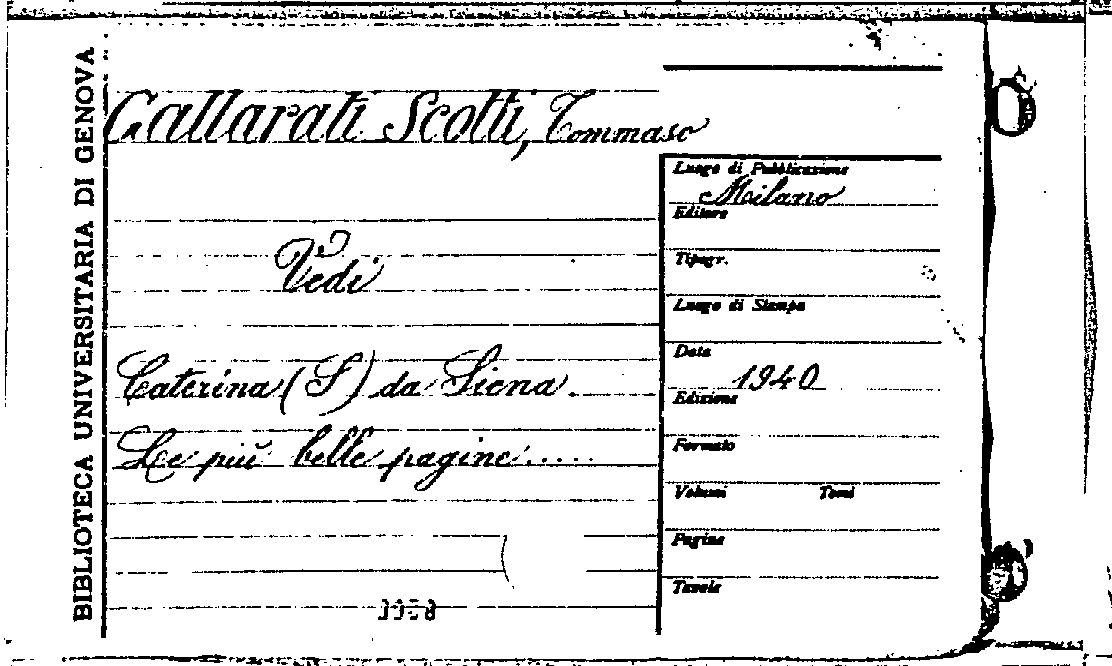 BIBLIOTECA UNIVERSITARIA DI GENOVA
Gallarati Scotti, Tommaso
Vedi
Caterina (S) da Siena.
Le più belle pagine.....
Luogo di Pubblicazione
Milano
Editore
Tipogr.
Luogo di Stampa
Data
1940
Edizione
Formato
Volumi Tomi
Pagine
Tavole